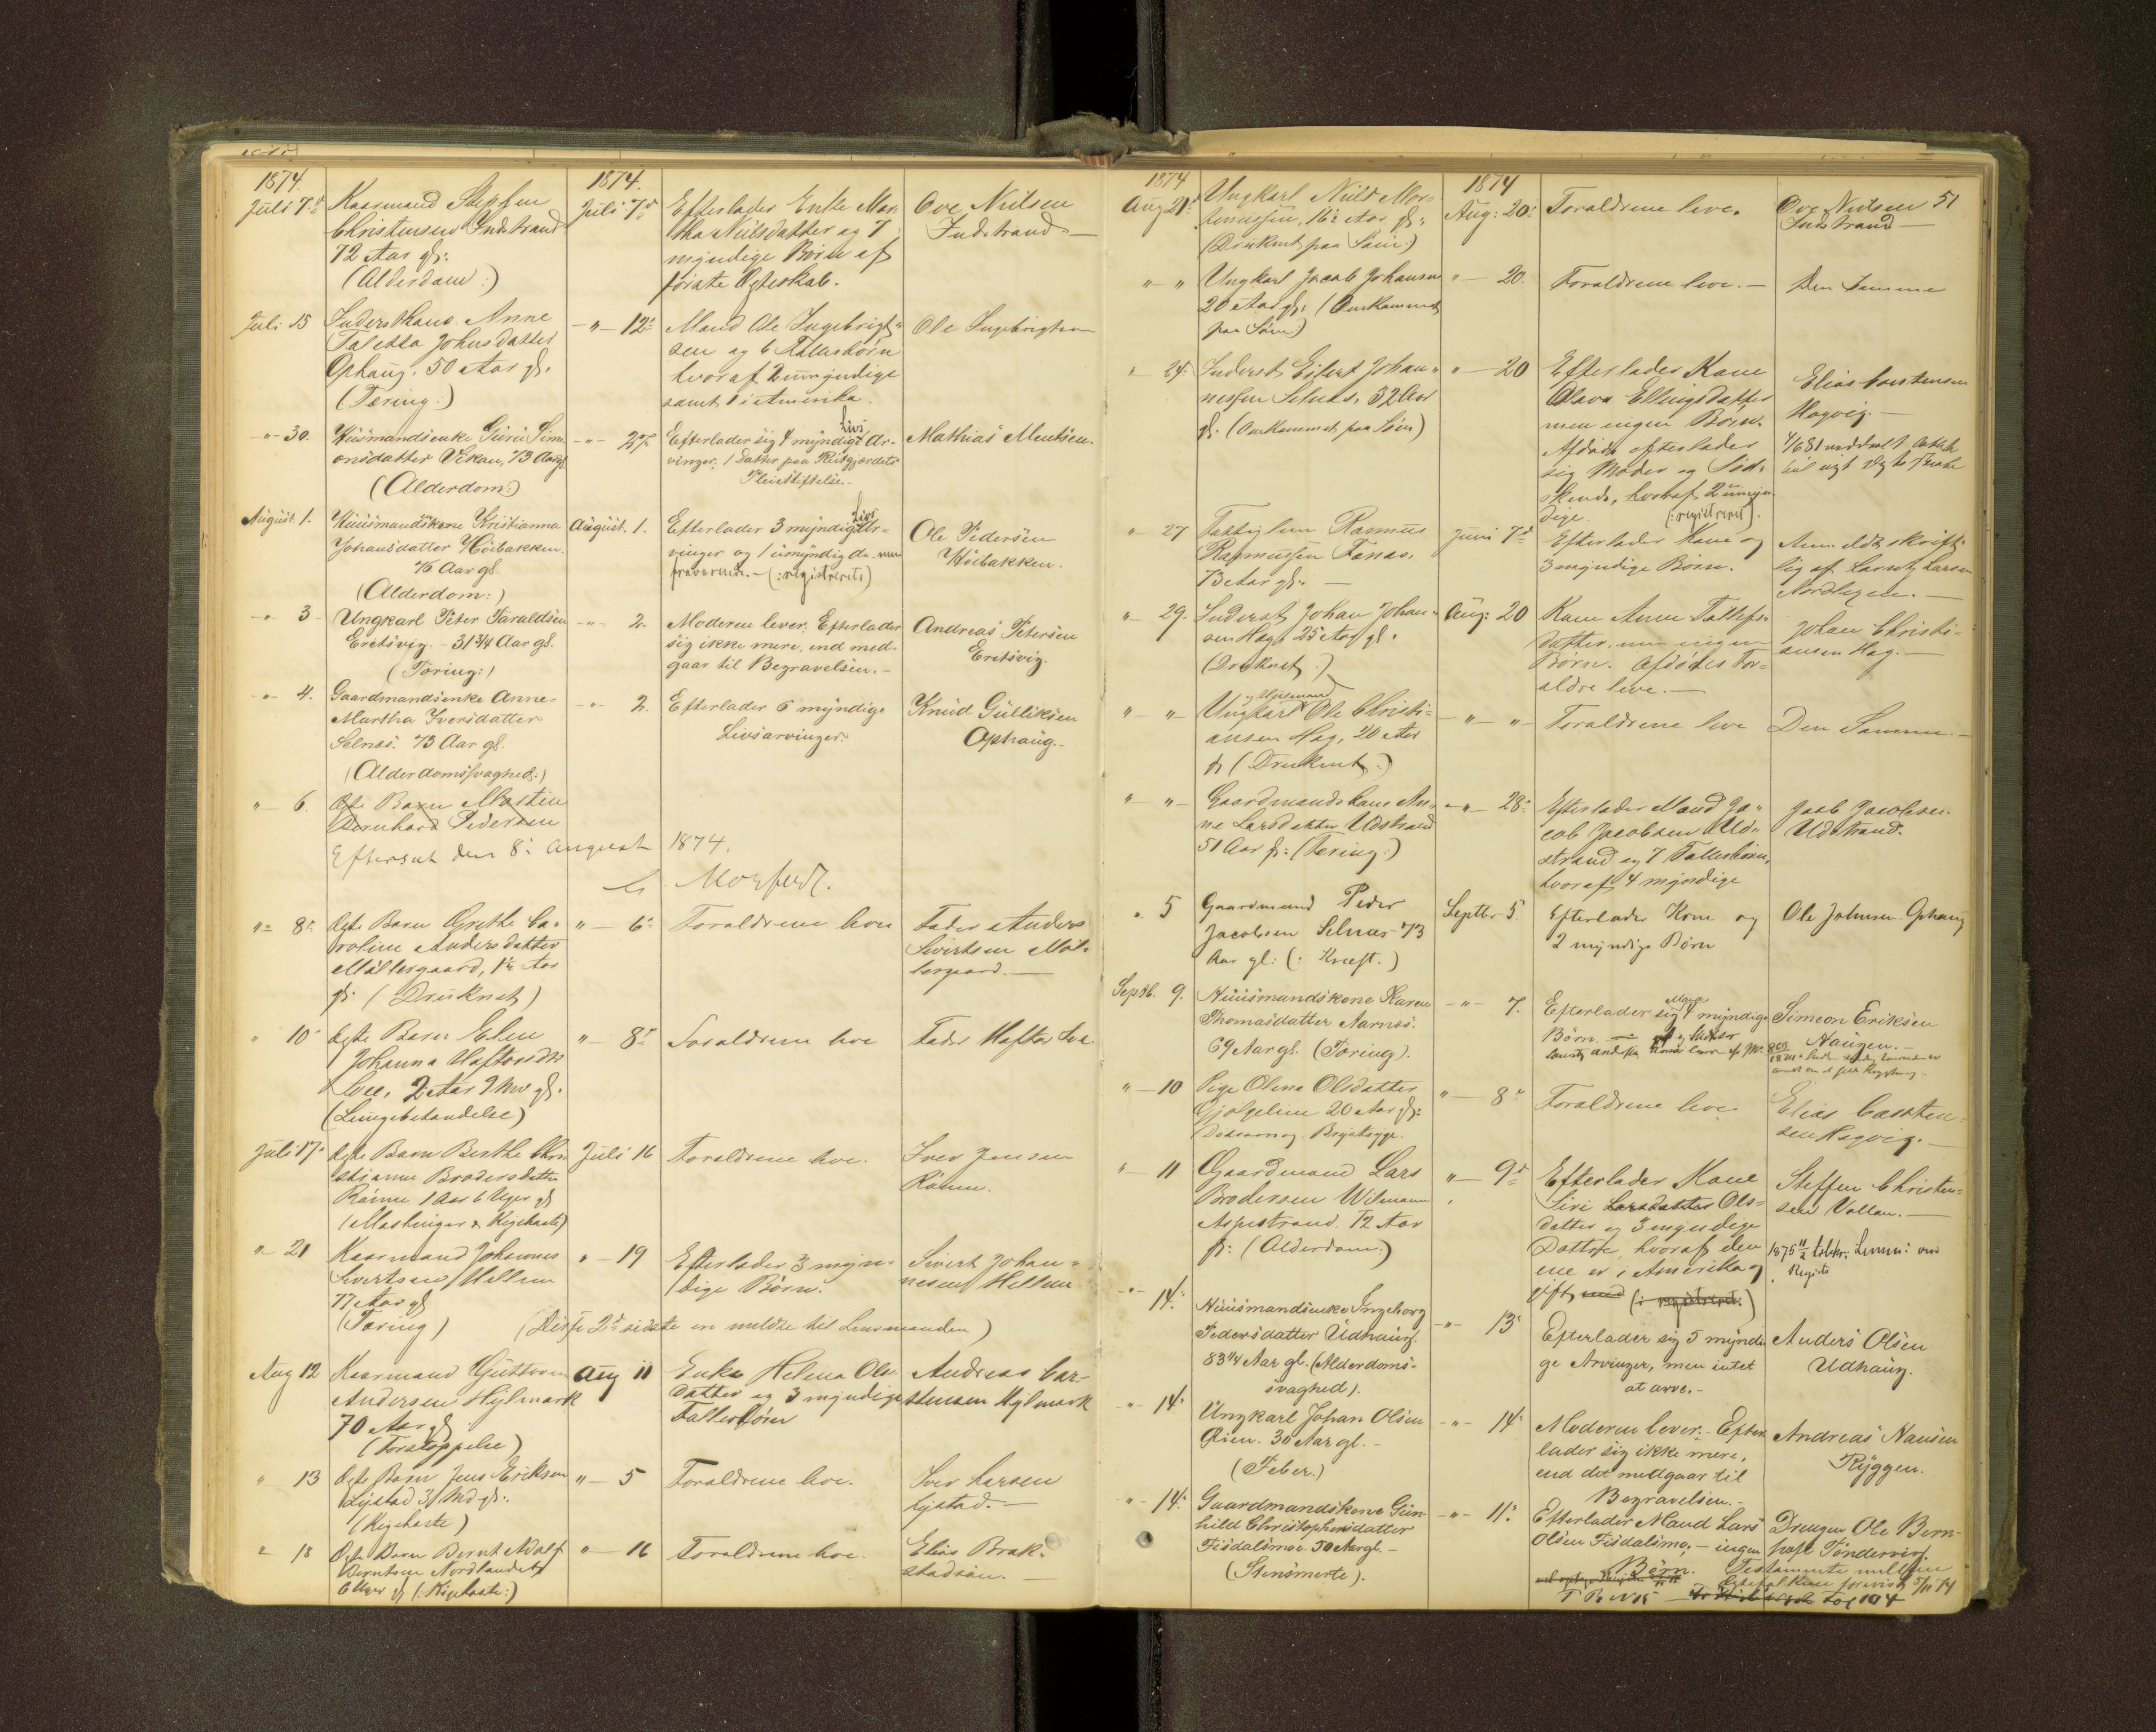 1874.
Juli 7de
Kaarmand Steffen
Christensen Indstrand
72 Aar gl:
(Alderdom:)
1874.
Juli 7de
Efterlader Enke Mar-
tha Nielsdatter og 7
myndige Børn af
første Egteskab.
Ove Nielsen
Indstrand
Juli 15
Inderstkone Anne
Johnsdatter
Ophaug. 50 Aar gl.
(Tæring:)
-"- 12te
Mand Ole Ingebrigt-
sen og 6 Fællesbørn
hvoraf 2 umyndige
samt 1 i Amerika.
Ole Ingebrigtsen
-"- 30.
Huusmandsenke Guru Sim-
onsdatter Vikan, 73 Aar gl.
(Alderdom:)
-"- 27.
Efterlader sig 4 myndige Livs Ar-
vinger, 1 Datter paa Reitgjerdets
Pleiestiftelse.
Mathias Mentsen.
August. 1.
Huusmandskone Kristianna
Johansdatter Høibakken.
76 Aar gl.
(Alderdom:)
August. 1.
Efterlader 3 myndige Livs Ar-
vinger og 1 umyndig do.
fraværende. - (:registreret:)
Ole Pedersen
Høibakken.
-"- 3
Ungkarl Peter Taraldsen
Eretsvig. - 31 3/4 Aar gl.
(Tæring:)
-"- 2.
Moderen lever. Efterlader
sig ikke mere, end med-
gaar til Begravelsen. -
Andreas Petersen
Eretsvig.
-"- 4.
Gaardmandsenke Anne-
Martha Iversdatter
Selnæs. 73 Aar gl.
(Alderdomssvaghed:)
-"- 2.
Efterlader 6 myndige
Livsarvinger.
Knud Gulliksen
Ophaug.
" - 6.
Egte Barn Martin
Bernhard Pedersen
Efterseet den 8de August 1874.
"- 8de
Egte Barn Grethe Ca-
roline Andersdatter
Møllergaard, 1 1/2 Aar
gl: (Druknet)
" - 6te
Forældrene leve
Fader Anders
Sivertsen Møl-
lergaard. -
" 10de
Egte Barn Elen
Johanna Haftorsdtr
2 Aar 9 Mdr gl.
(Lungebetændelse)
" - 8de
Forældrene leve
Fader Haftor
Juli 17de
Egte Barn Berthe Chri-
stianne Brodersdatter
Rønne 1 Aar 6 Uger gl
(Mæslinger & Kighoste)
Juli 16
Forældrene leve.
Iver Jensen
Rønne.
"- 21
Kaarmand Johannes
Sivertsen Hellem
77 Aar gl
(Tæring)
" - 19
Efterlader 3 myn-
dige Børn.
Sivert Johan-
nesen Hellem
(Disse 2de sidste en meldte til Lensmanden)
Aug 12
Kaarmand Guttorm
Andersen Hylmark
70 Aar gl
(Forstoppelse)
Aug 11
Enke Helena Ols-
datter og 3 myndige
Fællesbørn
Andreas Car-
stensen Hylmark
" 13
Egte Barn Jens Eriksen
Lysstad 3/4 Md gl:
(Kighoste)
" - 5
Forældrene leve.
Iver Larsen
Lysstad. -
" 18
Egte Barn Bernt Adolf
Berntsen Nordlandet
6 Uger gl (:Kighoste:)
" - 16
Forældrene leve.
Elias Brak-
stadsøen. -
51
1874
Aug 21de
Ungkarl Niels Mor-
tenussen, 16 1/2 Aar gl:
(Druknet paa Søen:)
1874
Aug: 20de
Forældrene leve.
Ove Nielsen
Indstrand -
" - "
Ungkarl Jacob Johansen
20 Aar gl: (Omkommet
paa Søen:)
" - 20.
Forældrene leve. -
Den Samme
" 24.
Inderst Eilert Johan-
nessen Selnæs, 32 Aar
gl: (Omkommet paa Søen)
" - 20
Efterlader Kone
Olava Ellingsdatter
men ingen Børn.
Afdøde efterlader
sig Moder og Sød-
skende, hvoraf 2 umyn-
dige. (:registreret:)
Elias Carstensen
Hagvig. -
" 27
Fattiglem Rasmus
Rasmussen Fanæs.
73 Aar gl:. -
Juni 7de
Efterlader Kone og
3 myndige Børn.
Anmeldt skrift-
lig af Larsen
Nordlagen. -
" 29.
Inderst Johan Johan-
sen Hagt 25 Aar gl.
(Druknet:)
Aug: 20
Kone Anne Tollefs-
datter, men ingen
Børn. Afdødes For-
ældre leve. -
Johan Christi-
ansen Hag. -
" - "
Ungkarl og Huusmand Ole Christi-
ansen Hag, 20 Aar
gl (Druknet:)
- " - " -
Forældrene leve
Den Samme. -
" - "
Gaardmandskone An-
ne Larsdatter Udstrand
51 Aar gl: (Tæring:)
-"- 28de
Efterlader Mand Ja-
cob Jacobsen Ud-
strand og 7 Fællesbørn,
hvoraf 4 myndige
Jacob Jacobsen
Udstrand.
" 5
Gaardmand Peder
Jacobsen Selnæs 73
Aar gl: (: Kræft.)
Septbr 5.
Efterlader Kone og
2 myndige Børn
Ole Johnsen Ophaug
Septb. 9.
Huusmandskone Karen
Thomasdatter Aarnes.
69 Aar gl. (Tæring).
-"- 7.
Efterlader sig Mand 4 myndige
Børn.
Simeon Eriksen
Naugen. -
" - 10
Pige Olina Olsdatter
20 Aar gl:
Brystsyge.
" - 8de
Forældrene leve
Elias Carsten-
sen Hagvig. -
" - 11
Gaardmand Lars
Brodersen Wilmann
Aspestrand. 72 Aar
gl: (Alderdom:)
" - 9de
Efterlader Kone
Siri Larsdatter Ols-
datter og 3 myndige
Døttre, hvoraf den
ene er i Amerika og
gift (: registreret:)
Steffen Christen-
sen Vollan. -
-"- 14.
Huusmandsenke Ingeborg
Pedersdatter Udhaug.
83 1/4 Aar gl. (Alderdoms-
svaghed).
-"- 13.
Efterlader sig 5 myndi-
ge Arvinger, men intet
at arve. -
Anders Olsen
Udhaug.
-"- 14.
Ungkarl Johan Olsen
Øien. 30 Aar gl. -
(Feber.)
-"- 14.
Moderen lever. - Efter-
lader sig ikke mere,
end det medgaar til
Begravelsen. -
Andreas Nausen
Ryggen.
-"- 14.
Gaardmandskone Gun-
hild Christophersdatter
Fisdalsmo. 50 Aar gl. -
(Stensmerte).
-"- 11.
Efterlader Mand Lars
Olsen Fisdalsmo, - ingen
Børn.
Drengen Ole Bern-
hoft Tøndervig.
Testamente mellem
5/11 74